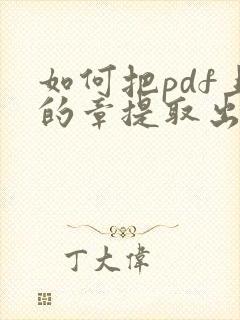 如何把pdf上
的章提取出
丁大偉